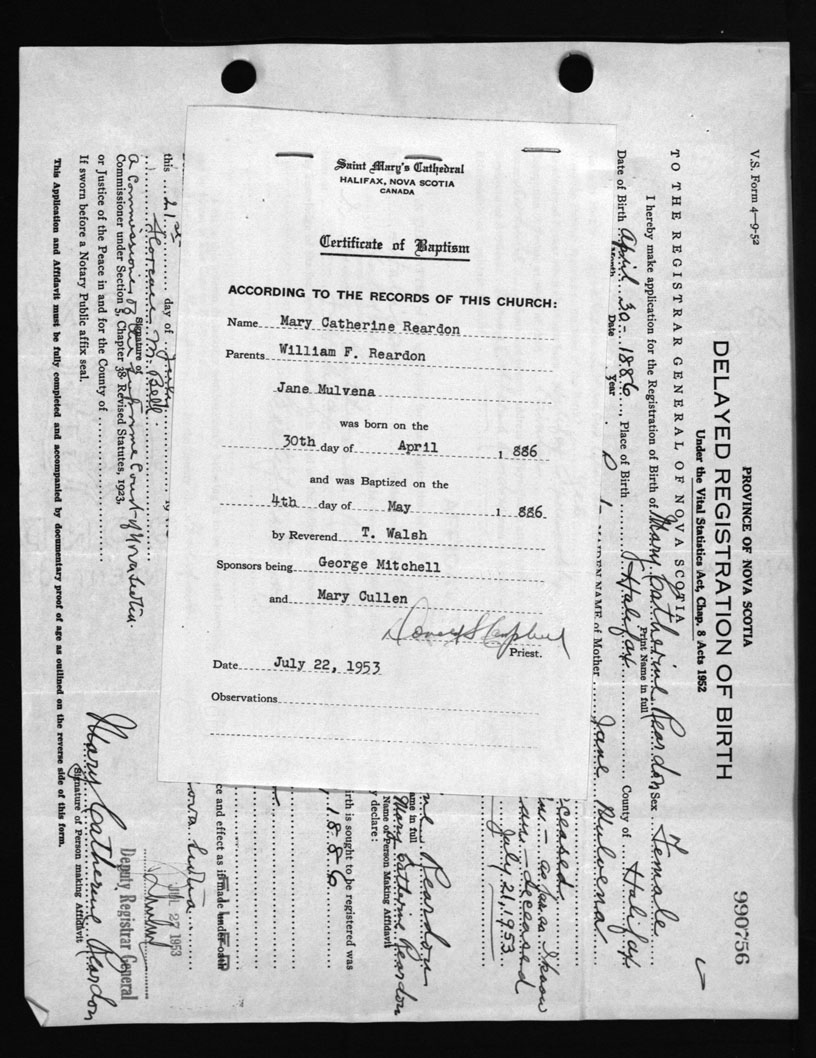 Saint Mary's Cathedral
HALIFAX, NOVA SCOTIA
CANADA
Certificate of Baptism
ACCORDING TO THE RECORDS OF THIS CHURCH:
Name Mary Catherine Reardon
Parents William F. Reardon
Jane Mulvena
was born on the
30th day of April 1 886
and was Baptized on the
4th day of May 1 886
by Reverend T. Walsh
Sponsors being George Mitchell
and Mary Cullen
Priest.
Date July 22, 1953
Observations
V.S. Form 4—9-52
PROVINCE OF NOVA SCOTIA
DELAYED REGISTRATION OF BIRTH
Under the Vital Statistics Act, Chap. 8 Acts 1952
990756
TO THE REGISTRAR GENERAL OF NOVA SCOTIA
I hereby make application for the Registration of Birth of Mary Catherine Reardon Sex Female
Print Name in full
Date of Birth April 30- 1886, Place of Birth Halifax County of Halifax
Month Date Year
MAIDEN NAME of Mother Jane Mulvena
ceased
as far as I know
deceased
July 21, 1953
Reardon
ame in full
Mary Catherine Reardon
Name of Person Making Affidavit
y declare:
irth is sought to be registered was
1886
ce and effect as if made under oath
ova Scotia
this 21st day of July 19
Florence M. Bell
Signature of
A Commissioner of the Supreme Court of Nova Scotia.
Commissioner under Section 3, Chapter 38 Revised Statutes, 1923,
or Justice of the Peace in and for the County of
If sworn before a Notary Public affix seal.
JUL 27 1953
Deputy Registrar General
Mary Catherine Reardon
Signature of Person making Affidavit
This Application and Affidavit must be fully completed and accompanied by documentary proof of age as outlined on the reverse side of this form.